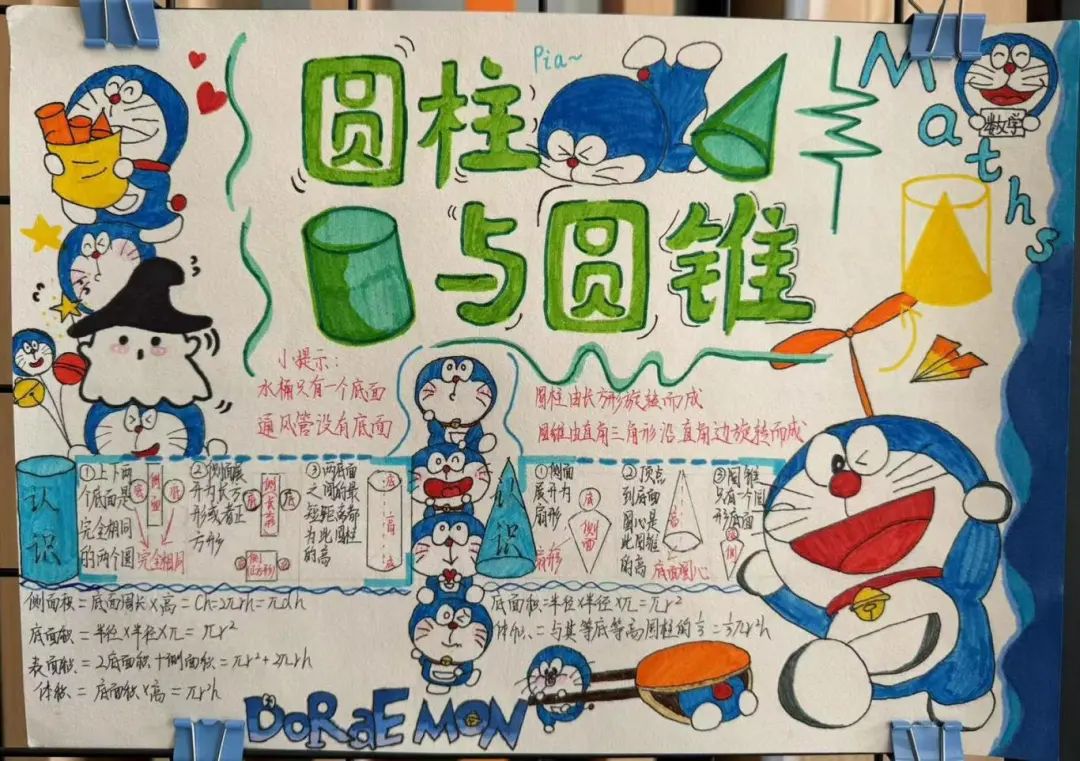 圆柱
Pia~
与圆锥
Maths
数学
小提示:
水桶只有一个底面
通风管没有底面
圆柱由长方形旋转而成
圆锥由直角三角形沿直角边旋转而成
认识
①上下两
个底面是
完全相同
的两个圆
底
侧面
底
完全相同
②侧面展
开为长方
形或者正
方形
底
侧(长方形)
底
侧
正方形
③两底面
之间的最
短距离都
为此圆柱
的高
底
高
底
认识
①侧面
展开为
扇形
底
侧面
扇形
②顶点
到底面
圆心是
此圆锥
的高
高
底面圆心
③圆锥
只有一个圆
形底面
底
侧
侧面积=底面周长×高=Ch=2πrh=πdh
底面积=半径×半径×π=πr²
表面积=2底面积+侧面积=πr²+2πrh
体积=底面积×高=πr²h
底面积=半径×半径×π=πr²
体积=与其等底等高圆柱的1/3=1/3πr²h
DORAEMON